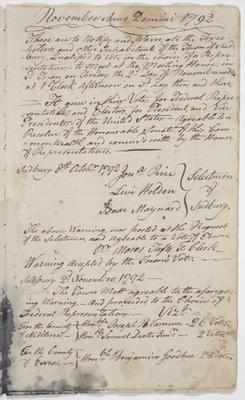 November Anno Domini 1792
These are to Notify and Warn all the Free
holders and other Inhabitants of the Town of Sud
bury Qualified to Vote in the choice of a Repre
sentative to Meet at the Meeting House in
Sd Town on Friday the 2d Day of November next
at 1 Clock afternoon on Sd day then and there
To give in their Votes for Federal Repre
sentatives and Electors for President and Vice
President of the United States agreeable to a
Resolve of the Honourable Senate of this Com
monwealth and concurred with by the House
of Representatives
Sudbury 8th Octobr 1792
Jona Rice
Levi Holden
Isaac Maynard
Selectmen
of
Sudbury
The above Warning was posted at the Request
of the Selectmen and agreeable to a Vote of Town
Pr Moses Taft T. Clerk
Warning accepted by the Town's Vote
Sudbury 2d November 1792
The Town Mett agreeable to the aforego
ing Warning and proceeded to the Choice of
Federal Representatives Vizt
For the County of Middlesex
Honble Joseph B. Varnum 26 Votes
Honble Samuel Dexter Junr 2 Votes
For the County
of Essex
Honble Benjamin Goodhue 28 Votes